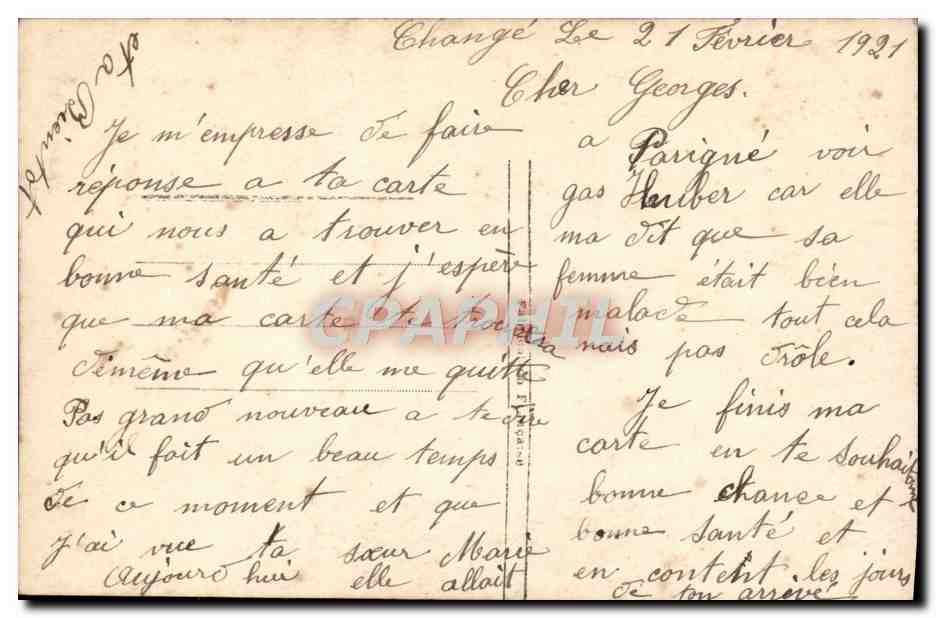 Changé Le 21 Février 1921
Cher Georges.
Je m'empresse de faire
réponse a ta carte
qui nous a trouver en
bonne santé et j'espère
que ma carte te trouvera
demême qu'elle me quitte
Pas grand nouveau a te dire
qu'il fait un beau temps
de ce moment et que
j'ai vue ta sœur Marie
Aujourd hui elle allait
a Parigné voir
gas Huber car elle
ma dit que sa
femme était bien
malade tout cela
nais pas drôle.
Je finis ma
carte en te souhaitant
bonne chance et
bonne santé et
en content les jours
de ton arrivé
et a Bientot
CPAPHIL